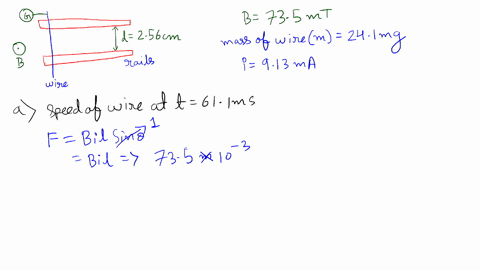 G
d=2.56cm
B
rails
wire
B= 73.5 mT
mass of wire(m) = 24.1mg
i= 9.13 mA
a) speed of wire at t = 61.1ms
F = Bil Sinθ 1
= Bil => 73.5 × 10⁻³